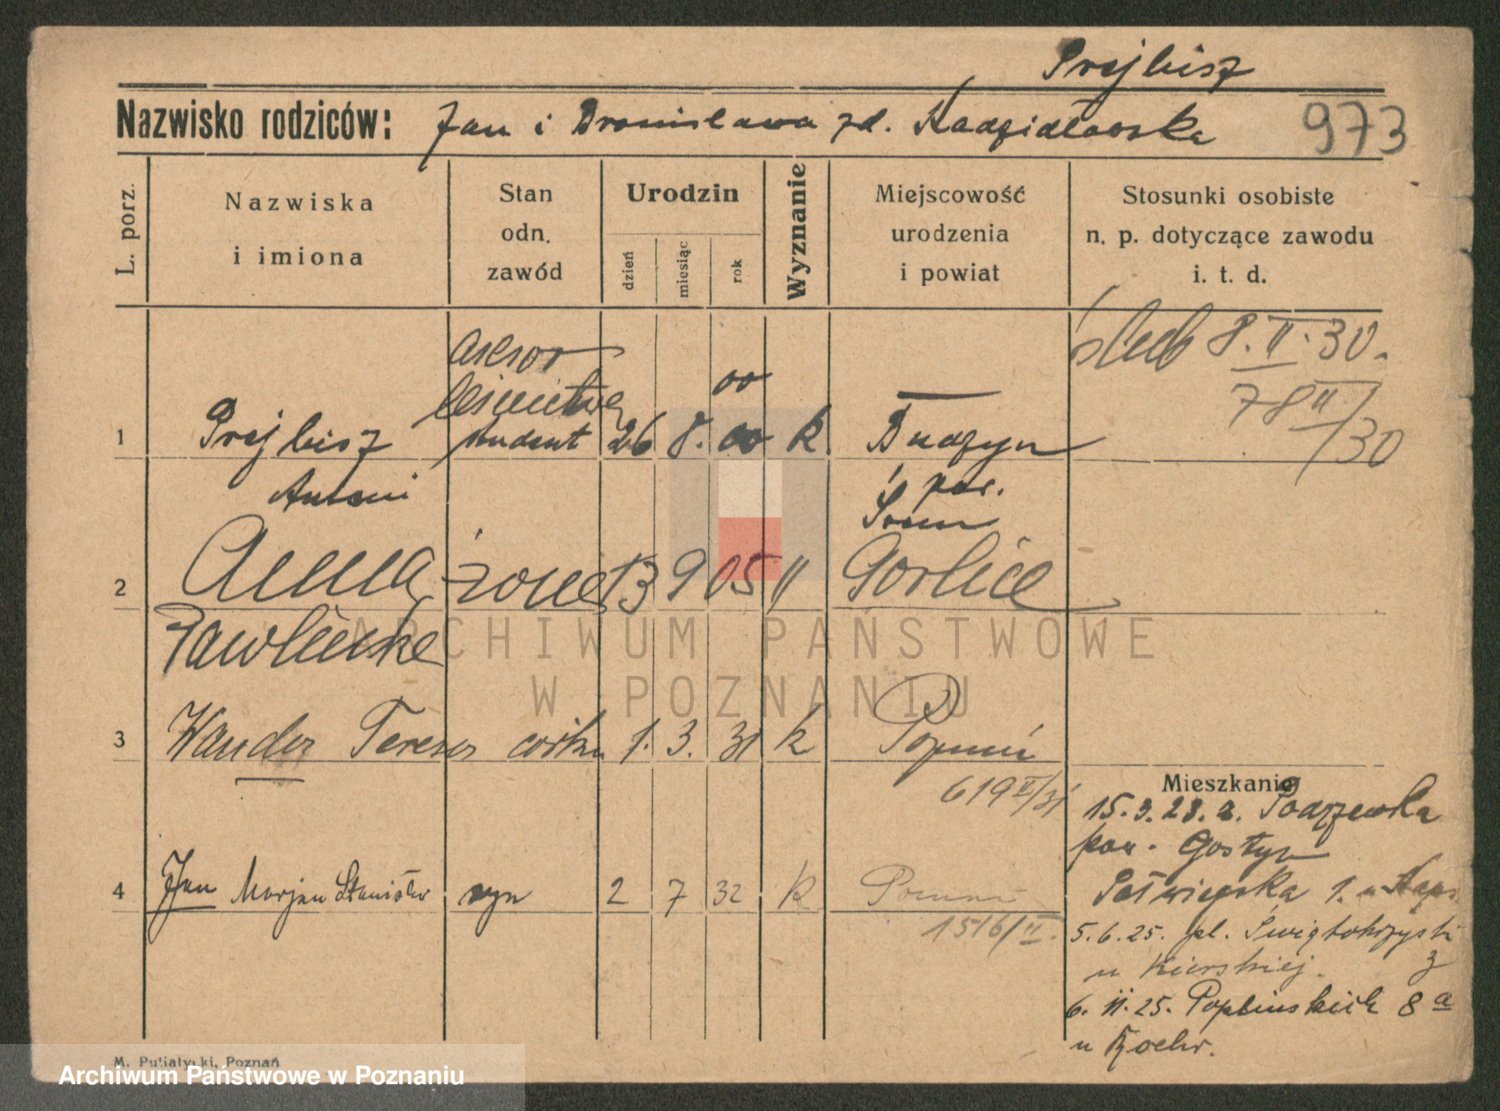 Prejbisz
Nazwisko rodziców: Jan i Bronisława zd. Kadzidłowska 973
L. porz.
Nazwiska i imiona
Stan odn. zawód
Urodzin
dzień miesiąc rok
Wyznanie
Miejscowość urodzenia i powiat
Stosunki osobiste n. p. dotyczące zawodu i. t. d.
ślub 8.II.30.
78 II/30
asesor
leśnictwa 00
1 Prejbisz student 26 8. 00 k. Budzyn
Antoni pow.
Śrem
2 Anna żona 13 9 05 " Gorlice
Pawlicka
ARCHIWUM PAŃSTWOWE
W POZNANIU
3 Wanda Teresa córka 1. 3. 31 k Poznań
619 II/31
4 Jan Marjan Stanisław syn 2 7 32 k Poznań
1516/II.
Mieszkanie
15.9.28. z. Podrzewka
pow. Gostyn
1. u
5.6.25. pl. Świętokrzyski 3
u
6.11.25. Poplińskich 8a
u
M. Putiatycki, Poznań
Archiwum Państwowe w Poznaniu